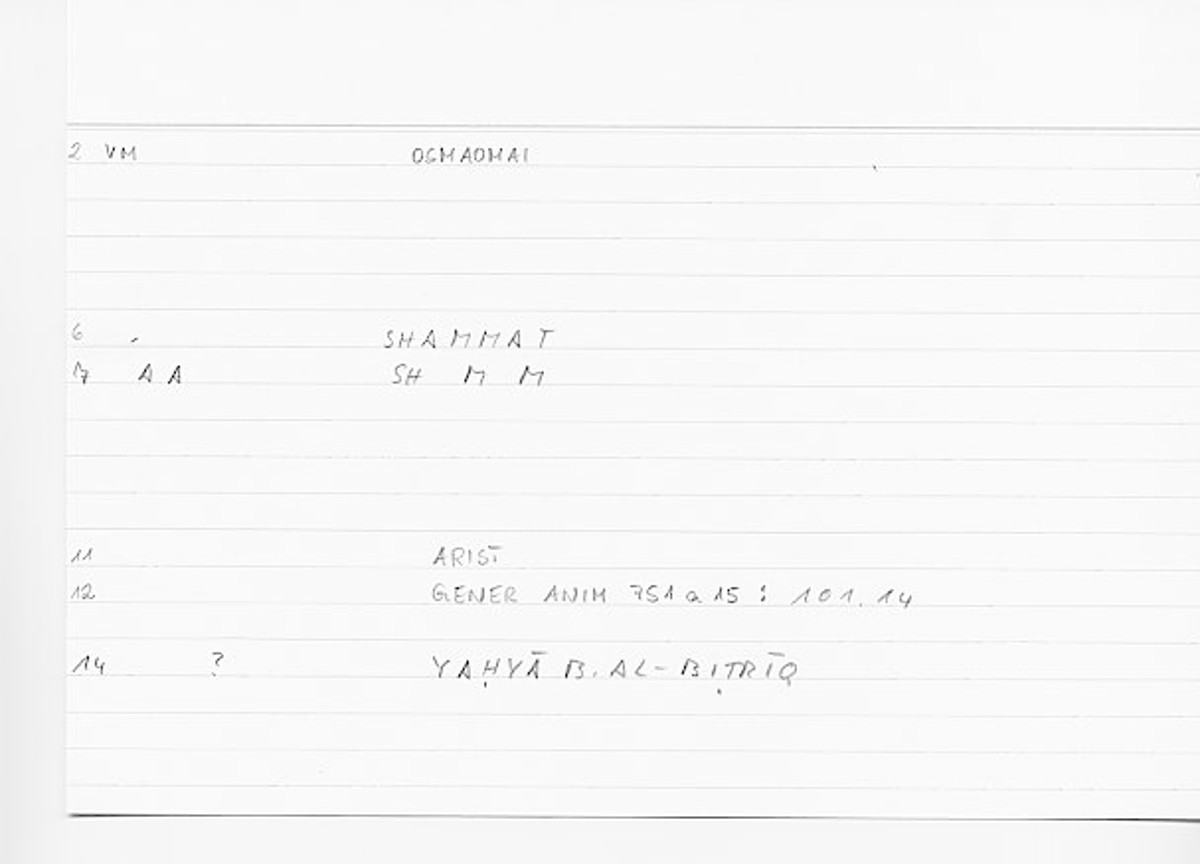 2 VM OSMAOMAI
6 SHAMMAT
7 AA SH M M
11 ARIST
12 GENER ANIM 751 a 15 : 101.14
14 ? YAḤYĀ B. AL-BIṬRĪQ